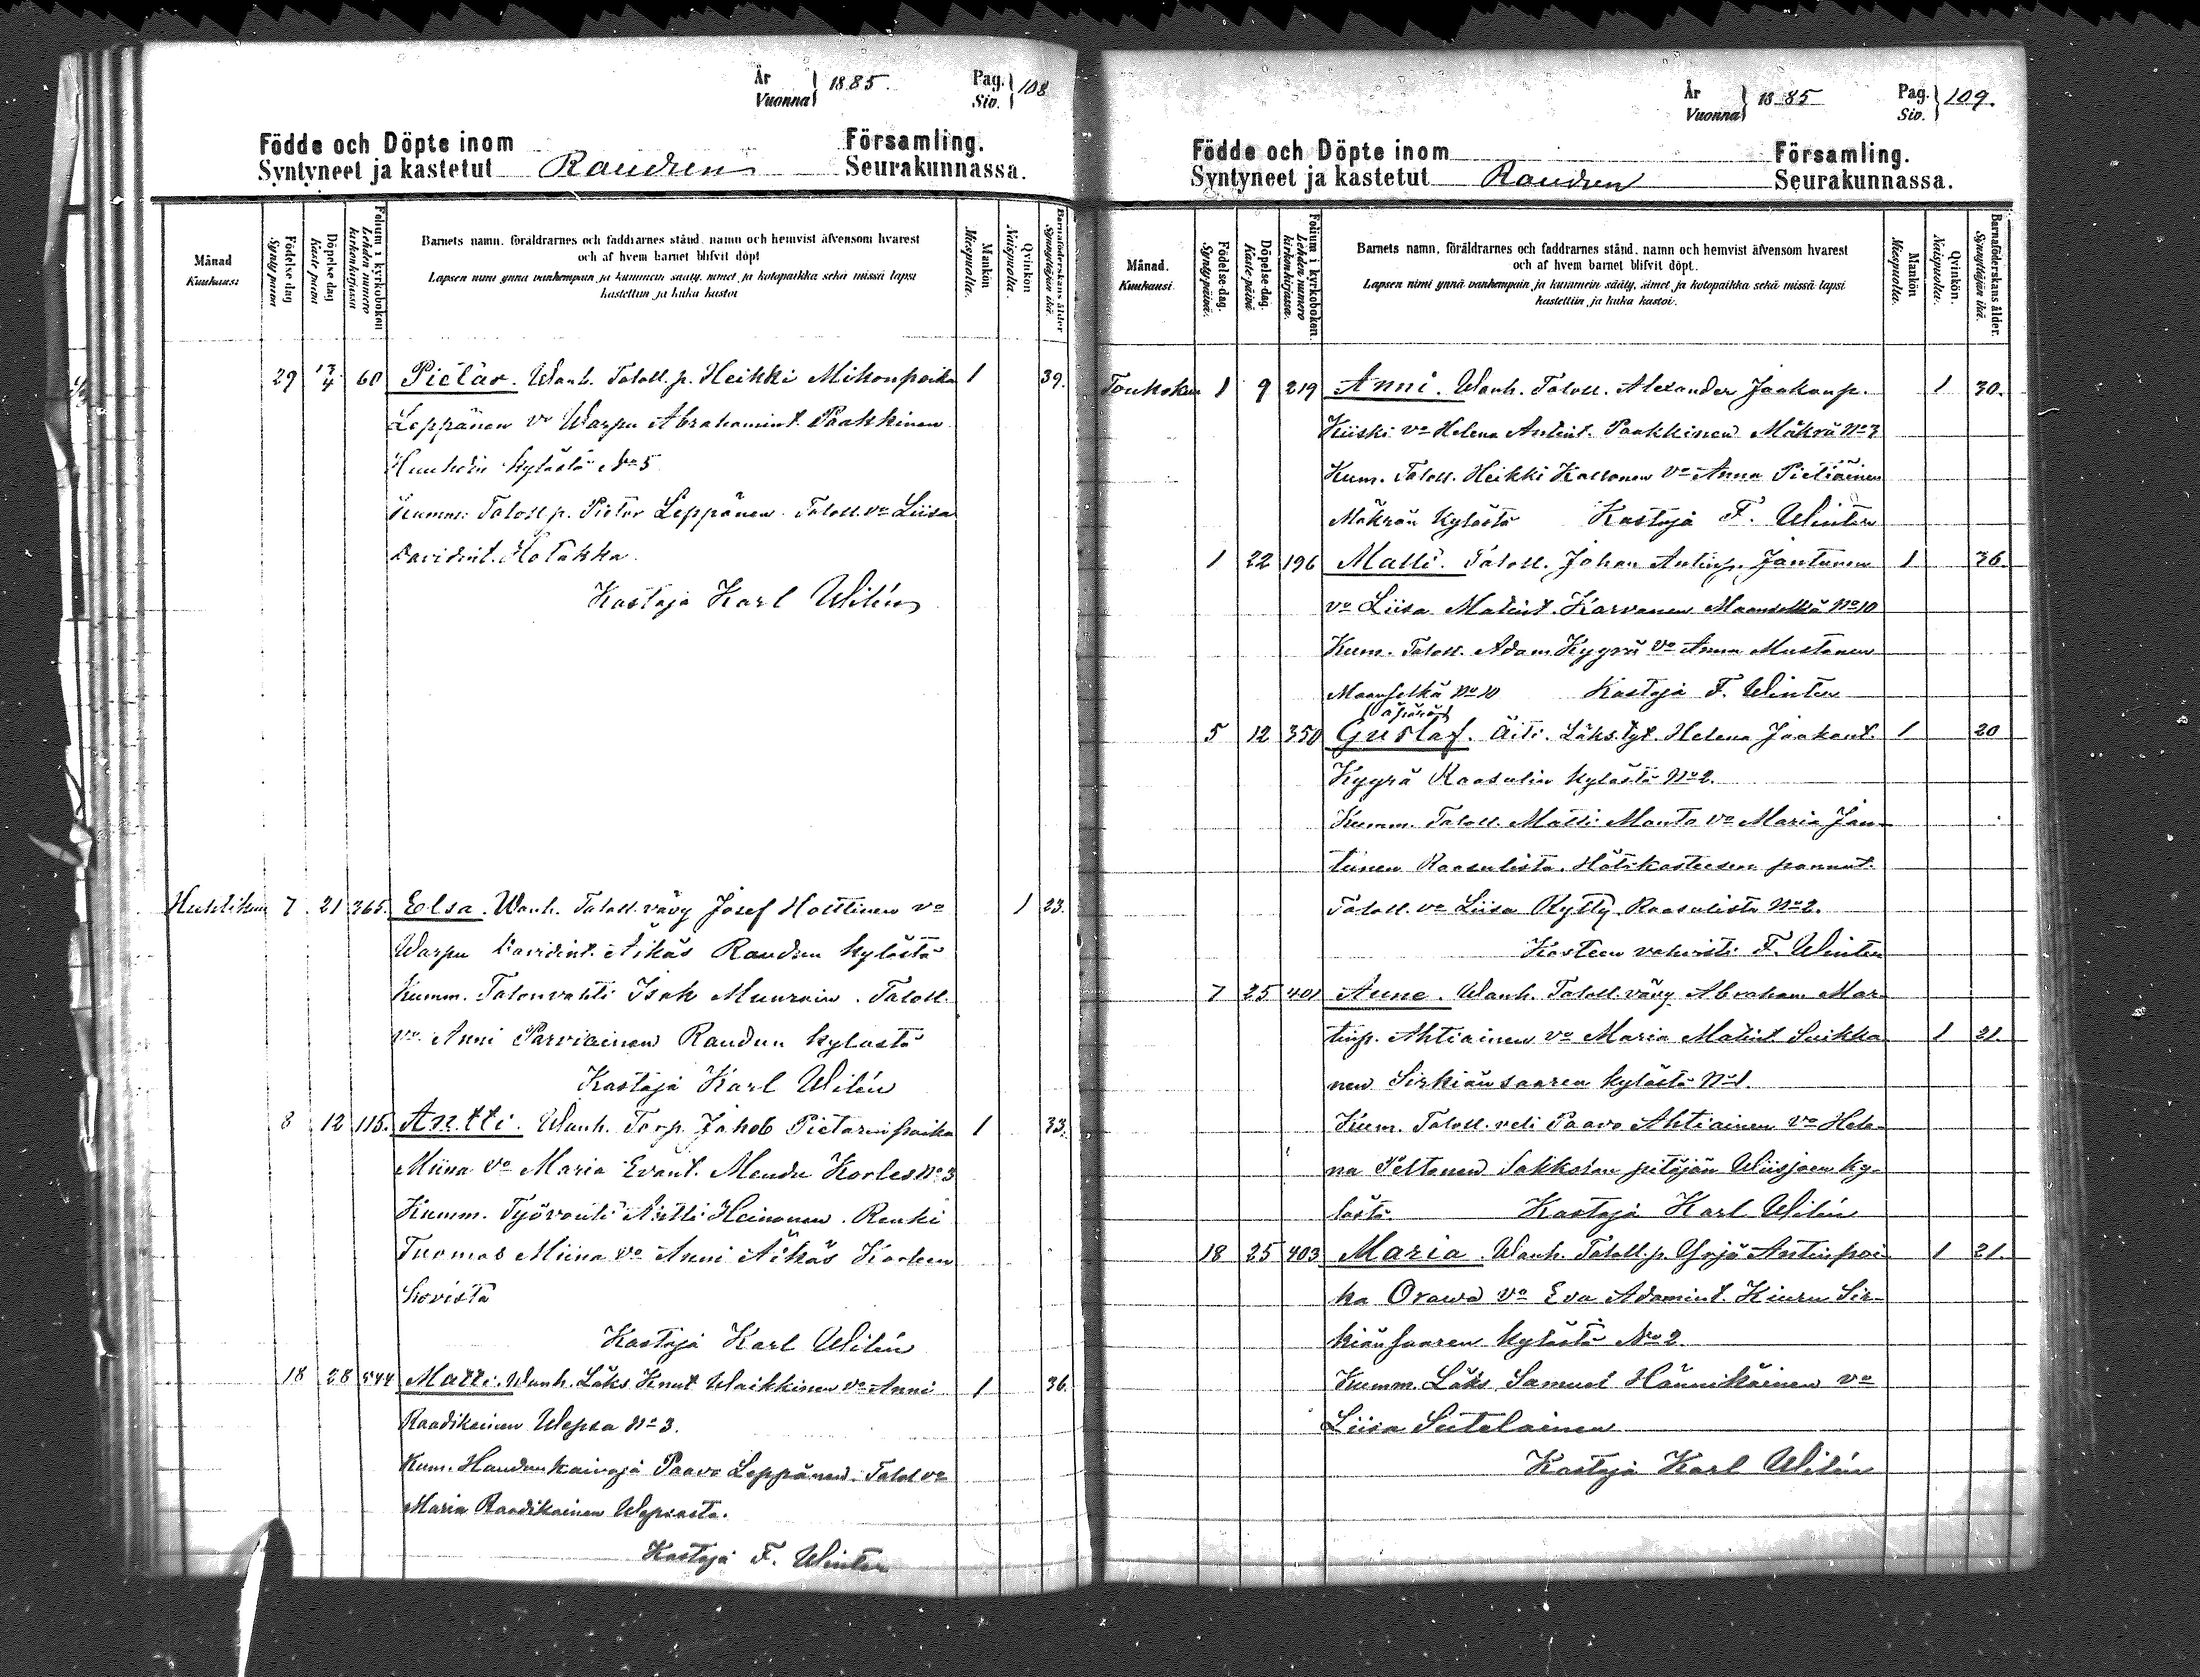 År
Vuonna
1885.
Pag.
Siv.
108
Födde och Döpte inom
Syntyneet ja kastetut Raudun
Församling.
Seurakunnassa.
Månad
Kuukausi
Födelse dag
Synty päivä
Döpelse dag
Kaste päivä
Folium i kyrkoboken
Lehden numero kirkonkirjassa
Barnets namn, föräldrarnes och faddrarnes stånd, namn och hemvist äfvensom hvarest
och af hvem barnet blifvit döpt
Lapsen nimi ynnä vanhempain ja kummein sääty, nimet ja kotopaikka sekä missä lapsi
kastettiin ja kuka kastoi
Mankön
Miespuolta.
Qvinkön
Naispuolta.
Barnaföderskans ålder
Synnyttäjän ikä.
29 13/4 60 Pietar. Wanh. Taloll. p. Heikki Mikonpoika 1 39.
Leppänen vo Warpu Abrahamint. Paakkinen
Huuhdin kylästä No 5
Kumm: Taloll p. Pietar Leppänen. Taloll. vo Liisa
Davidint. Hotakka.
Kastaja Karl Wilén
Huhtikuu 7 21 365. Elsa. Wanh. Taloll. vävy Josef Hottinen vo 1 23.
Warpu Davidint. Äikäs Raudun kylästä
Kumm. Talonvahti Isak Muurain. Taloll.
vo Anni Parviainen Raudun kylästä
Kastaja Karl Wilén
8 12 115. Antti. Wanh. Torp. Jakob Pietarinpoika 1 33.
Miina vo Maria Evant. Mendu Korles No 3
Kumm. Työvouti Antti Heinonen. Renki
Tuomas Miina vo Anni Äikäs Korleen
hovista
Kastaja Karl Wilén
18 28 544 Matti. Wanh. Läks. Knut Waikkinen vo Anni 1 36.
Raadikainen Wepsa No 3.
Kum. Haudankaivaja Paavo Leppänen. Talol vo
Maria Raadikainen Wepsasta.
Kastaja F. Winter
År
Vuonna
1885
Pag.
Siv.
109.
Födde och Döpte inom
Syntyneet ja kastetut Raudun
Församling.
Seurakunnassa.
Månad.
Kuukausi
Födelse-dag.
Syntypäivä.
Döpelse-dag.
Kaste-päivä
Folium i kyrkoboken.
Lehden numero kirkonkirjassa.
Barnets namn, föräldrarnes och faddrarnes stånd, namn och hemvist äfvensom hvarest
och af hvem barnet blifvit döpt.
Lapsen nimi ynnä vanhempain ja kummein sääty, nimet ja kotopaikka sekä missä lapsi
kastettiin ja kuka kastoi.
Mankön
Miespuolta.
Qvinkön.
Naispuolta.
Barnaföderskans ålder.
Synnyttäjän ikä.
Toukokuu 1 9 219 Anni. Wanh. Taloll. Alexander Jaakonp. 1 30.
Kiiski vo Helena Antint. Paakkinen Mäkrä No 3
Kum. Taloll. Heikki Kaltonen vo Anna Pietiäinen
Mäkrän kylästä Kastaja F. Winter
1 22 196 Matti. Taloll. Johan Antinp. Jantunen 1 36.
vo Liisa Matint. Karvanen Maanselkä No 10
Kum. Taloll. Adam Kyyrä vo Anna Mustonen
Maanselkä No 10 Kastaja F. Winter
(äpärä)
5 12 350 Gustaf. Äiti. Läks. tyt. Helena Jaakont. 1 20
Kyyrä Raasulin kylästä No 2.
Kumm. Taloll. Matti Manta vo Maria Jan-
tunen Raasulista. Hätäkasteesen pannut.
Taloll. vo Liisa Kytty Raasulista No 2.
Kasteen vahvisti F. Winter
7 25 401 Anne. Wanh. Taloll. vävy Abraham Mar-
tinp. Ahtiainen vo Maria Matint Suikka- 1 21.
nen Sirkiänsaaren kylästä No 1.
Kum. Taloll. veli Paavo Ahtiainen vo Hele-
na Peltonen Sakkolan pitäjän Wiisjoen ky-
lästä. Kastaja Karl Wilén
18 25 403 Maria. Wanh. Taloll. p. Yrjö Antinpoi- 1 21.
ka Orawa vo Eva Adamint. Kiuru Sir-
kiänsaaren kylästä No 2
Kumm. Läks. Samuel Hännikäinen vo
Liisa Sutelainen
Kastaja Karl Wilén